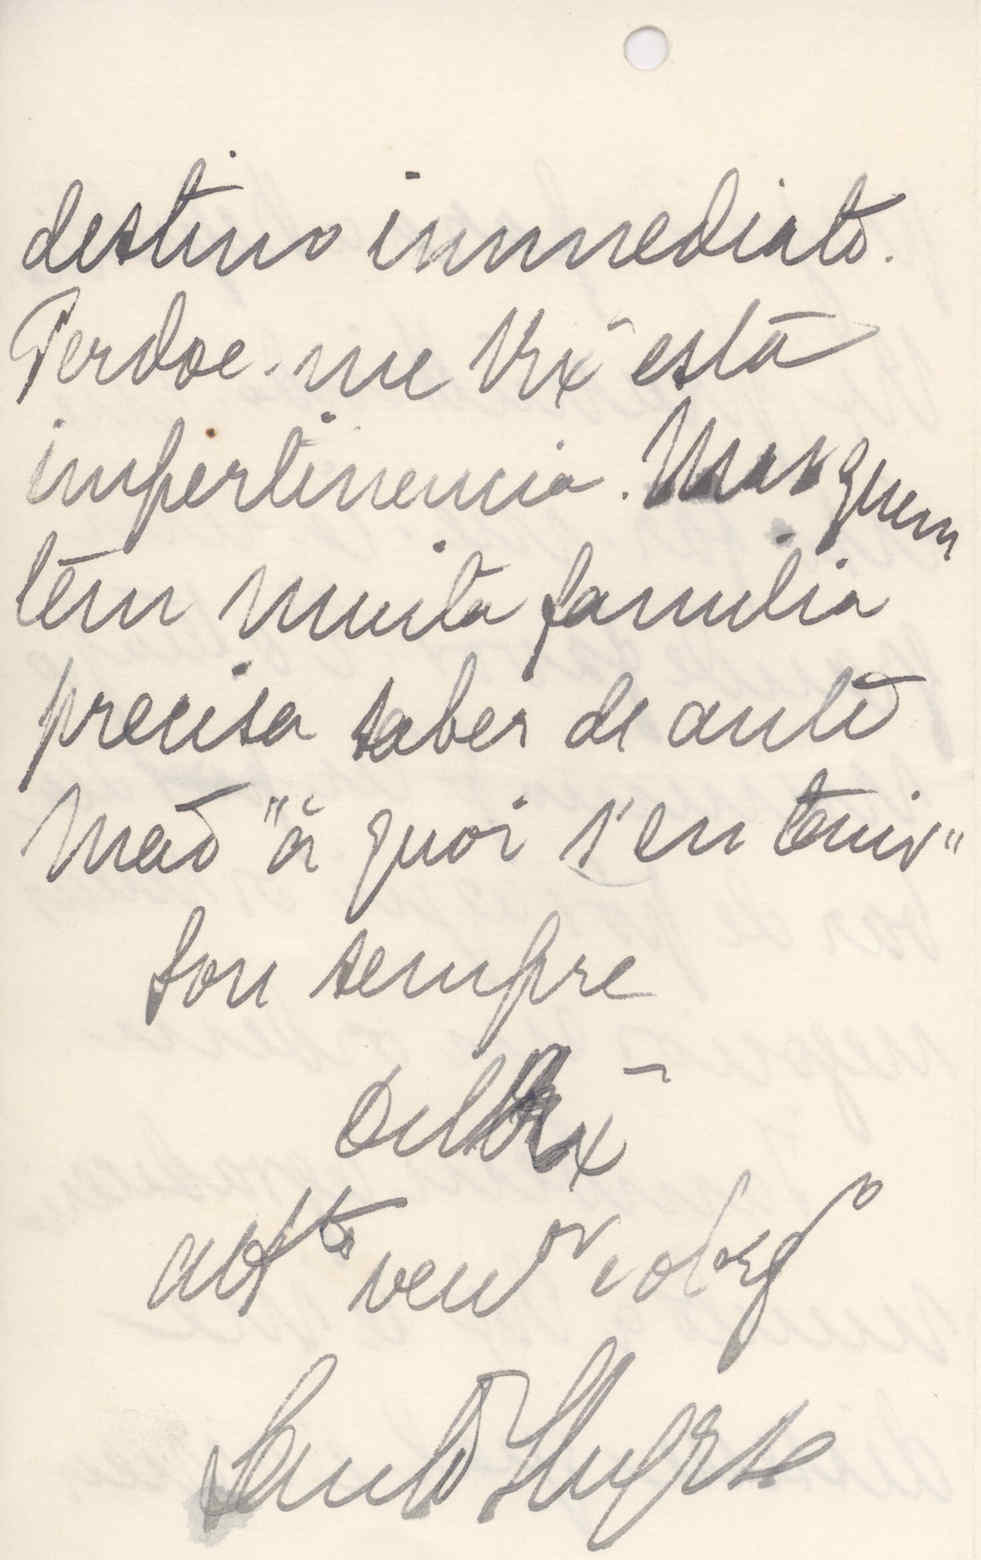 destino immediato.
Perdoe-me Vxª está
impertinencia. Mas quem
têm muita familia
precisa saber de ante
mão "à quoi s'en tenir"
Sou sempre
De Vxª
attº venºr e obrgº